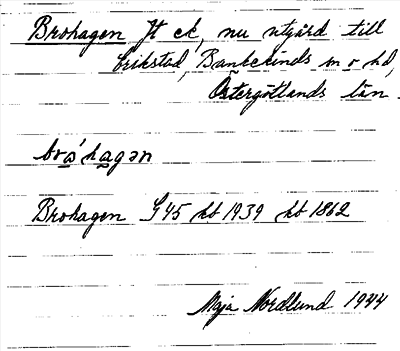 Brohagen Jt ek, nu utgård till
Erikstad, Bankekinds sn o hd,
Östergötlands län.
bro'hagen
Brohagen G45 kb 1939 kb 1862
Maja Nordlund 1944